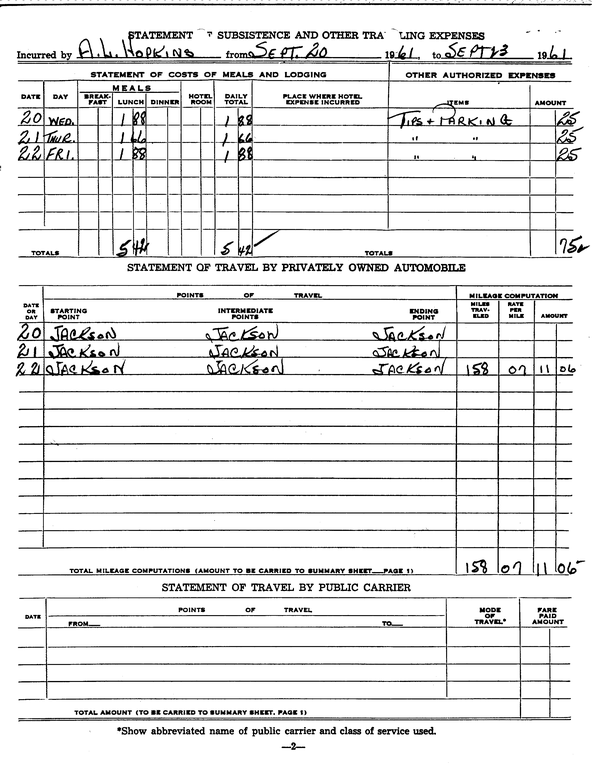 STATEMENT SUBSISTENCE AND OTHER TRA LING EXPENSES
Incurred by A.L. HOPKINS from SEPT. 20 1961 to SEPT 23 1961
STATEMENT OF COSTS OF MEALS AND LODGING OTHER AUTHORIZED EXPENSES
DATE DAY MEALS BREAK-FAST LUNCH DINNER HOTEL ROOM DAILY TOTAL PLACE WHERE HOTEL EXPENSE INCURRED ITEMS AMOUNT
20 WED. 1 88 1 88 TIPS + PARKING 25
21 THUR. 1 66 1 66 " " 25
22 FRI. 1 88 1 88 " " 25
TOTALS 5 42 5 42 TOTALS 75
STATEMENT OF TRAVEL BY PRIVATELY OWNED AUTOMOBILE
POINTS OF TRAVEL MILEAGE COMPUTATION
DATE OR DAY STARTING POINT INTERMEDIATE POINTS ENDING POINT MILES TRAV-ELED RATE PER MILE AMOUNT
20 JACKSON JACKSON JACKSON
21 JACKSON JACKSON JACKSON
22 JACKSON JACKSON JACKSON 158 07 11 06
TOTAL MILEAGE COMPUTATIONS (AMOUNT TO BE CARRIED TO SUMMARY SHEET__PAGE 1) 158 07 11 06
STATEMENT OF TRAVEL BY PUBLIC CARRIER
DATE POINTS OF TRAVEL MODE OF TRAVEL* FARE PAID AMOUNT
FROM__ TO__
TOTAL AMOUNT (TO BE CARRIED TO SUMMARY SHEET. PAGE 1)
*Show abbreviated name of public carrier and class of service used.
—2—